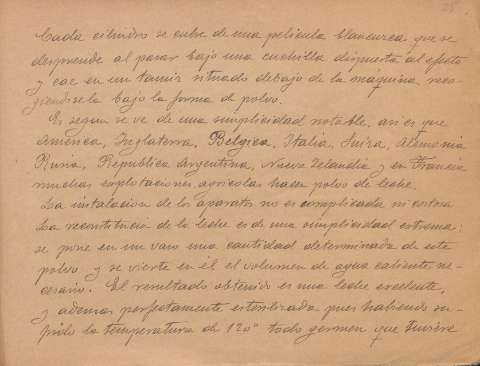 Cada cilindro se cubre de una pelicula blancuzca que se
desprende al pasar bajo una cuchilla dispuesta al efecto
y cae en un tamiz situado debajo de la maquina reco-
giendosela bajo la forma de polvo.
Es segun se ve de una simplicidad notable, asi es que
America, Inglaterra, Belgica, Italia, Suiza, Alemania
Rusia, Republica Argentina, Nueva Zelandia y en Francia
muchas explotaciones agricolas hacen polvo de leche.
La instalacion de los aparatos no es complicada ni costosa
La reconstitucion de la leche es de una simplicidad extrema:
se pone en un vaso una cantidad determinada de este
polvo y se vierte en él el volumen de agua caliente ne-
cesario. El resultado obtenido es una leche excelente,
y ademas perfectamente esterilizada pues habiendo su-
frido la temperatura de 120° todo germen que tuviere